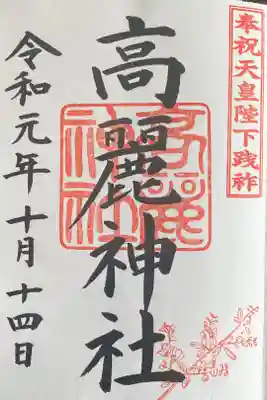 奉祝天皇陛下践祚
高麗神社
令和元年十月十四日